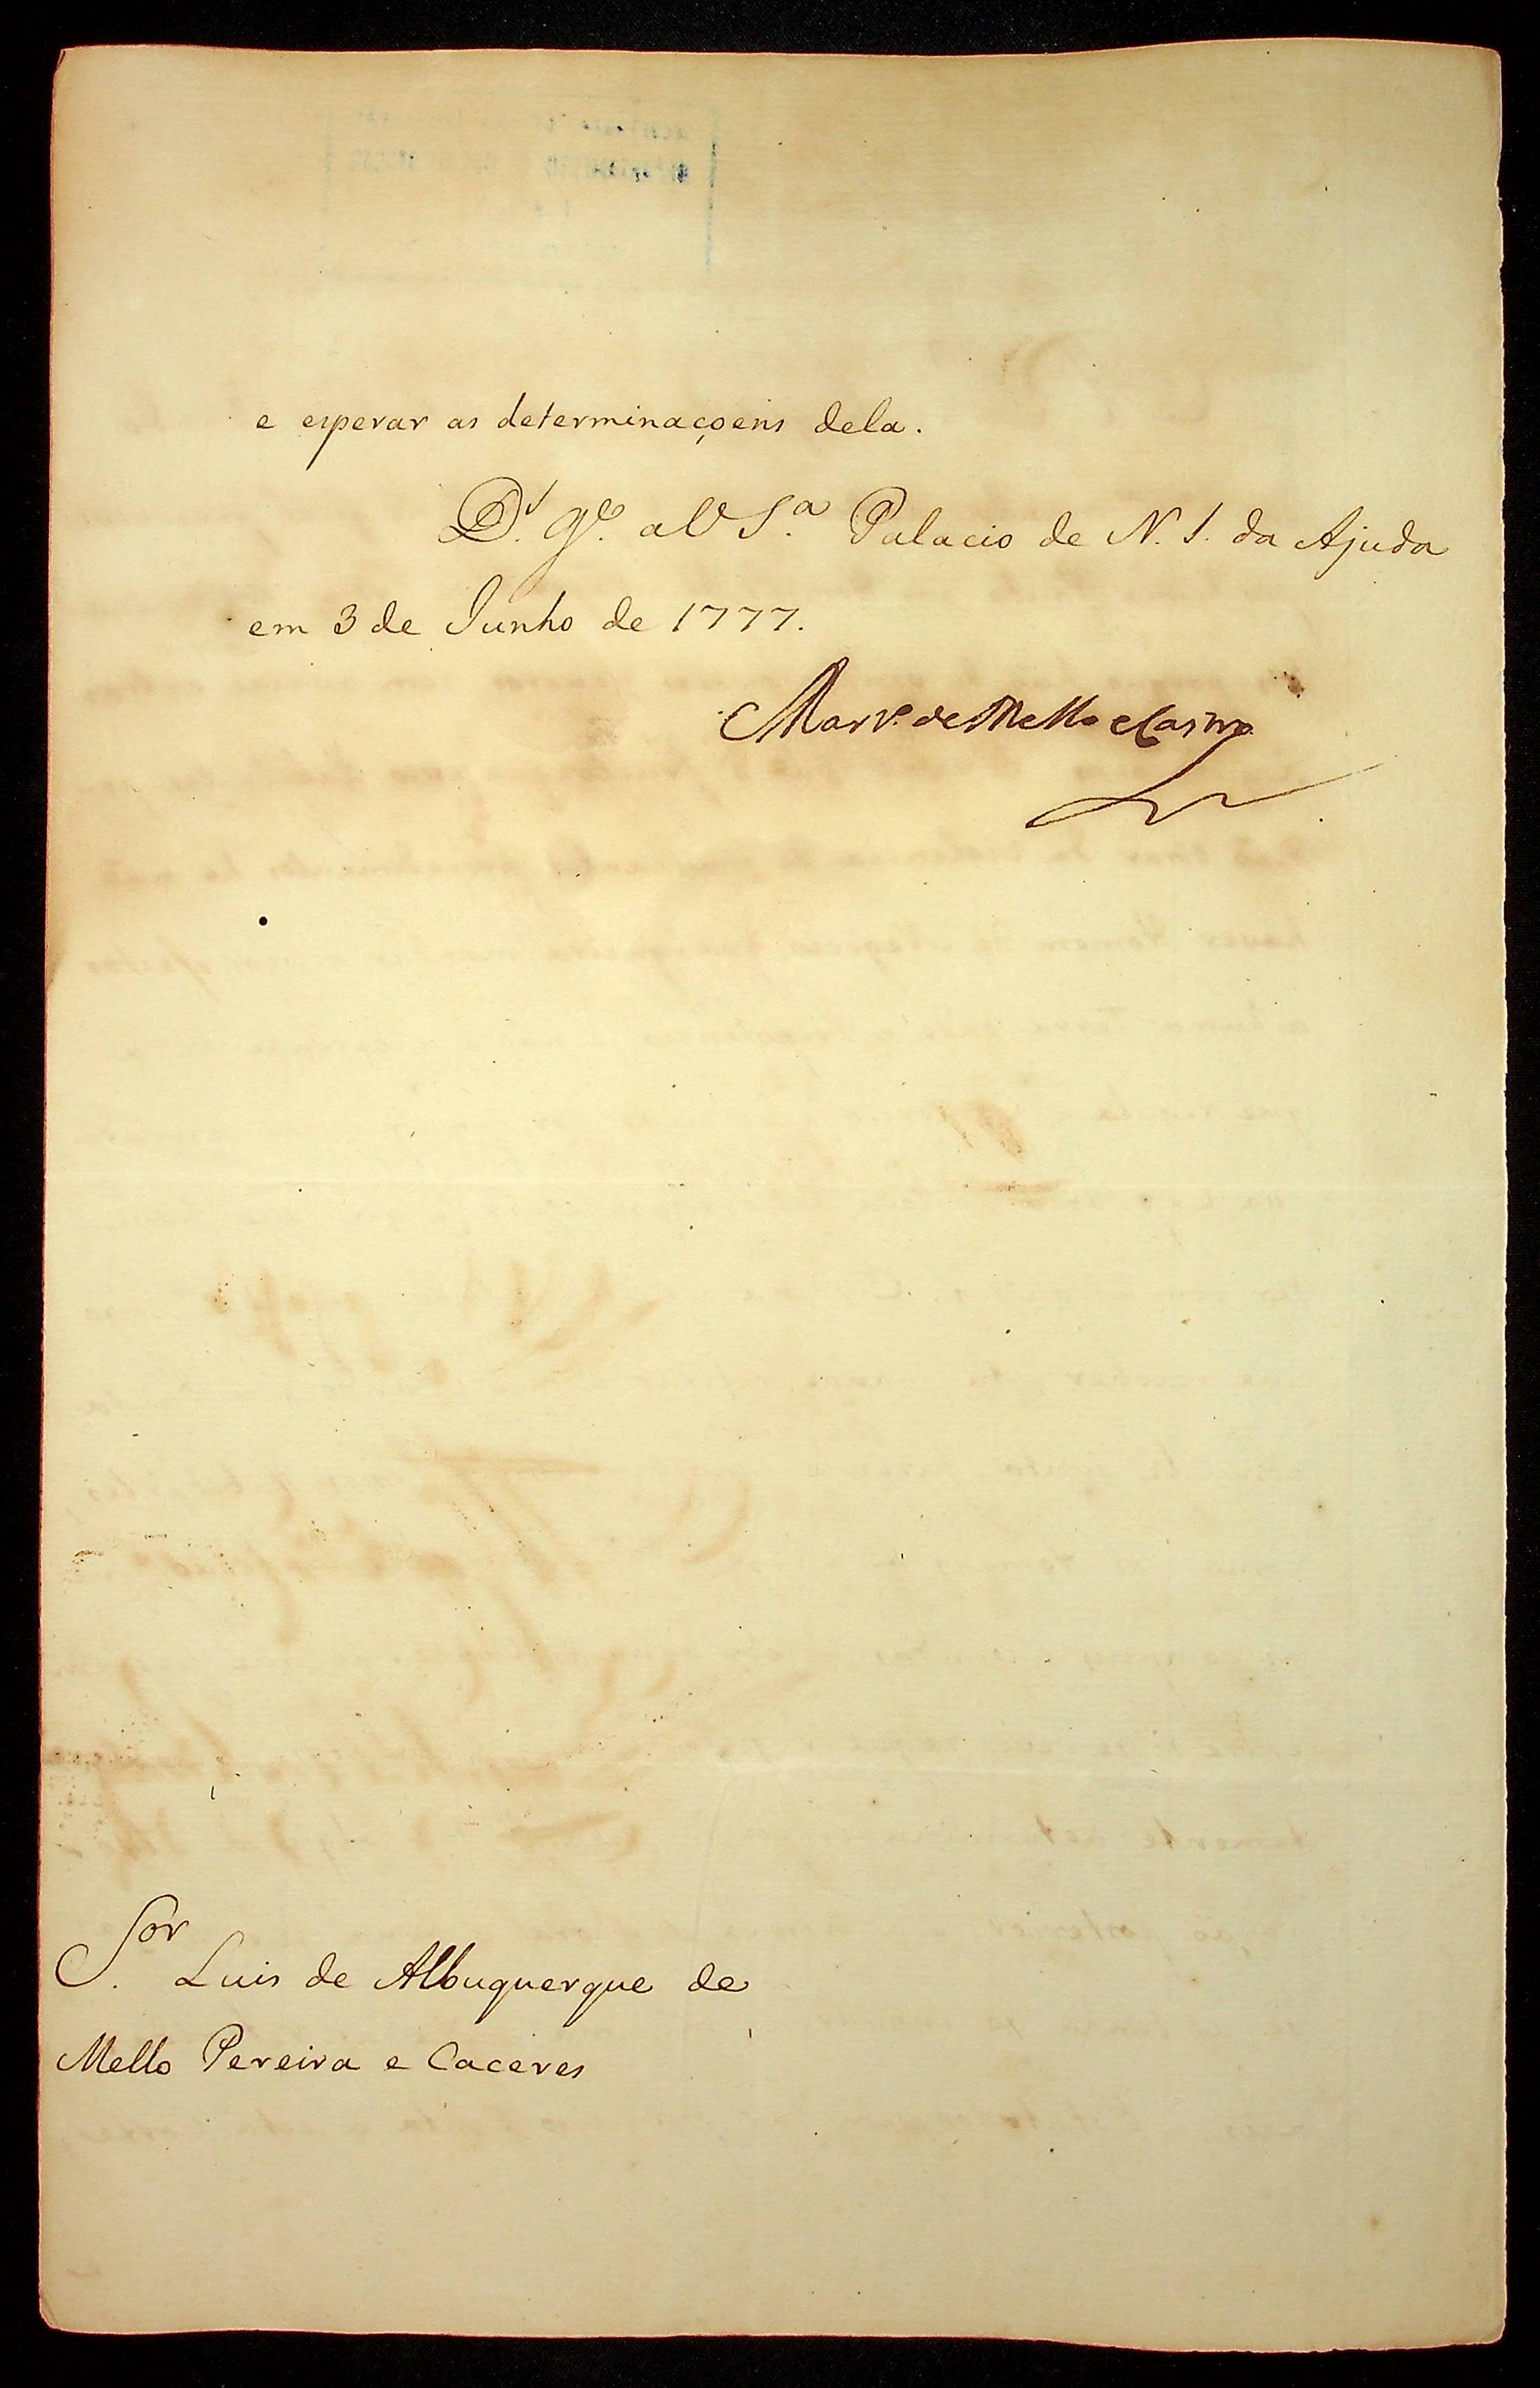 e esperar as determinaçoens dela.
D.s g.e a V S.a Palacio de N. S. da Ajuda
em 3 de Junho de 1777.
Mart.o de Mello e Castro
S.or Luis de Albuquerque de
Mello Pereira e Caceres